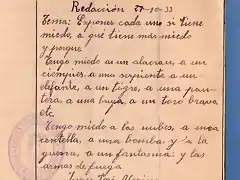 Redacción 27-10-33
Tema: Exponer cada uno si tiene
miedo, a qué tiene más miedo
y porque
Tengo miedo as un alacran, a un
ciempiés, a una serpiente a un
elefante, a un tigre, a una pan-
tera, a una bruja, a un toro bravo
etc.
Tengo miedo a las nubes, a una
centella, a una bomba y a la
guerra, a un fantasma y las
armas de fuego
Juan José